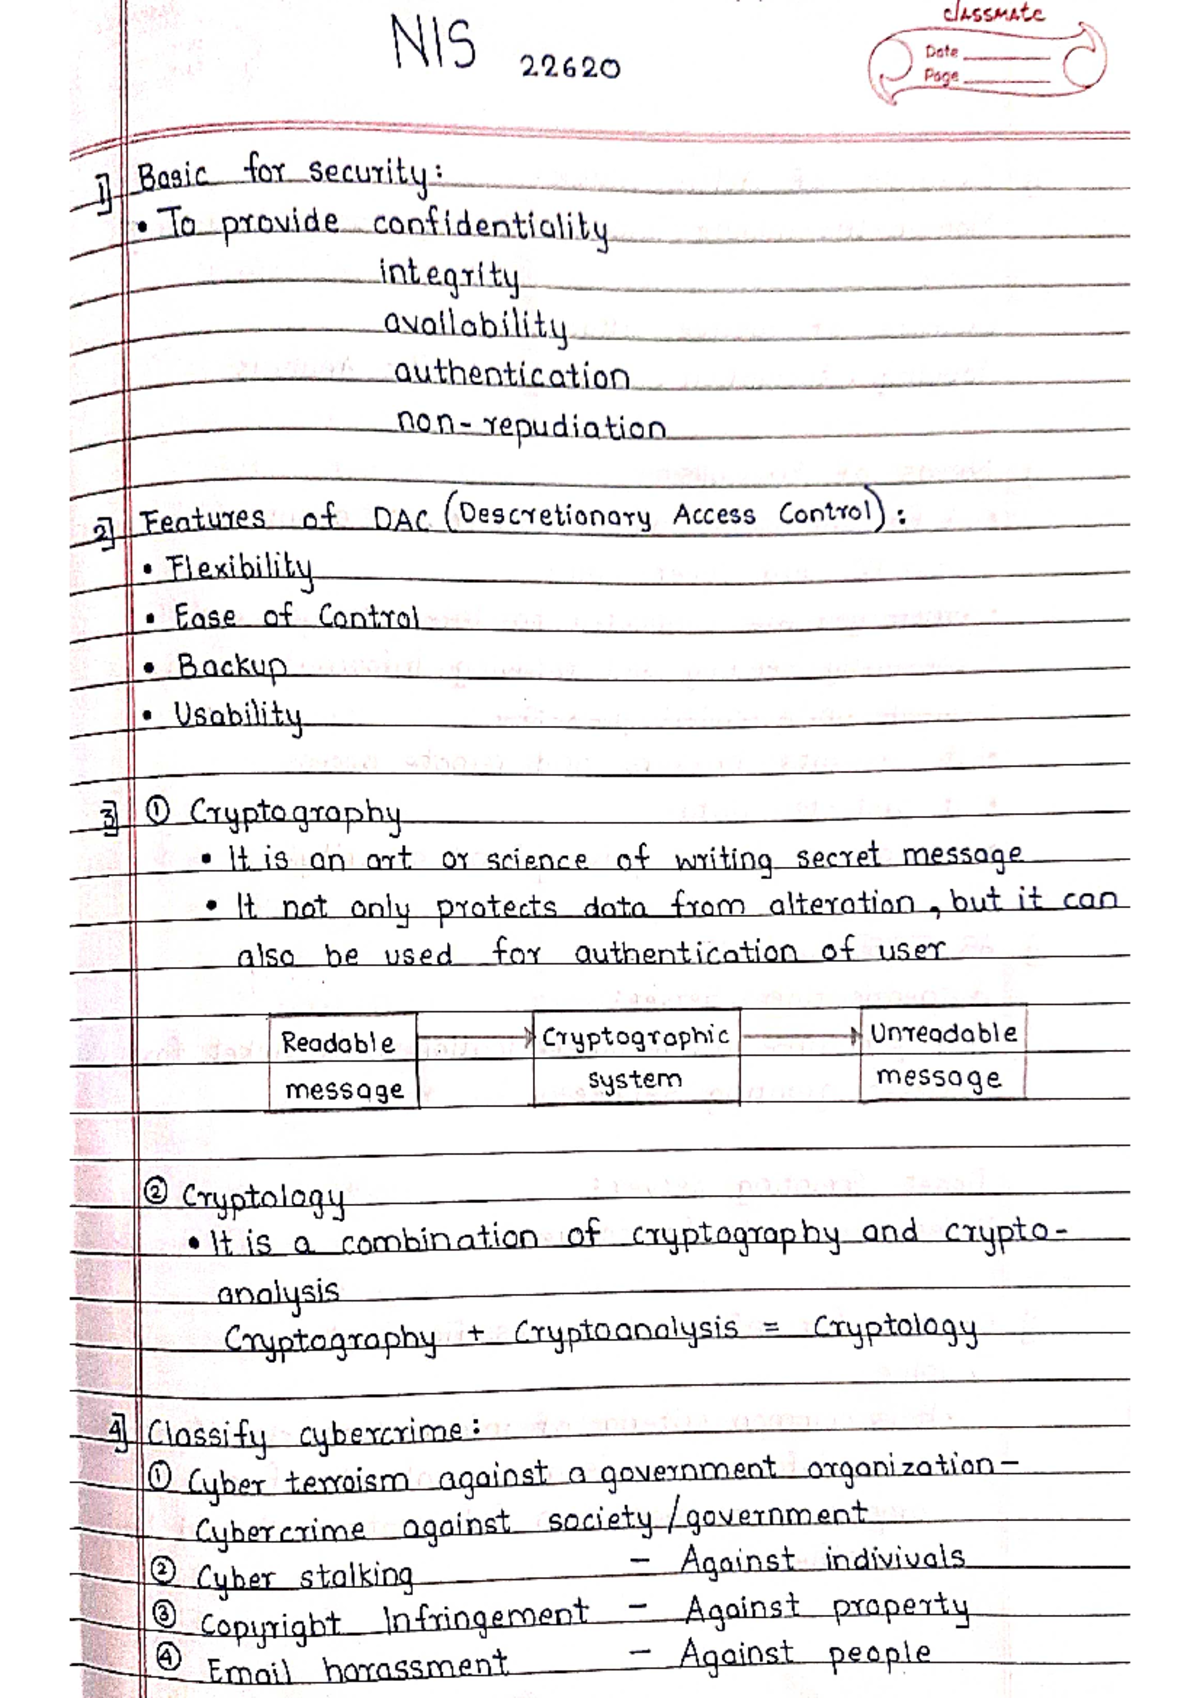 classmate
Date
Page
NIS 22620
1] Basic for security:
• To provide confidentiality
integrity
availability
authentication
non-repudiation
2] Features of DAC (Descretionary Access Control):
• Flexibility
• Ease of Control
• Backup
• Usability
3] ① Cryptography
• It is an art or science of writing secret message
• It not only protects data from alteration, but it can
also be used for authentication of user
Readable → Cryptographic → Unreadable
message system message
② Cryptology
• It is a combination of cryptography and crypto-
analysis
Cryptography + Cryptoanalysis = Cryptology
4] Classify cybercrime:
① Cyber terroism against a government organization-
Cybercrime against society/government
② Cyber stalking - Against indivivals
③ Copyright Infringement - Against property
④ Email harassment - Against people